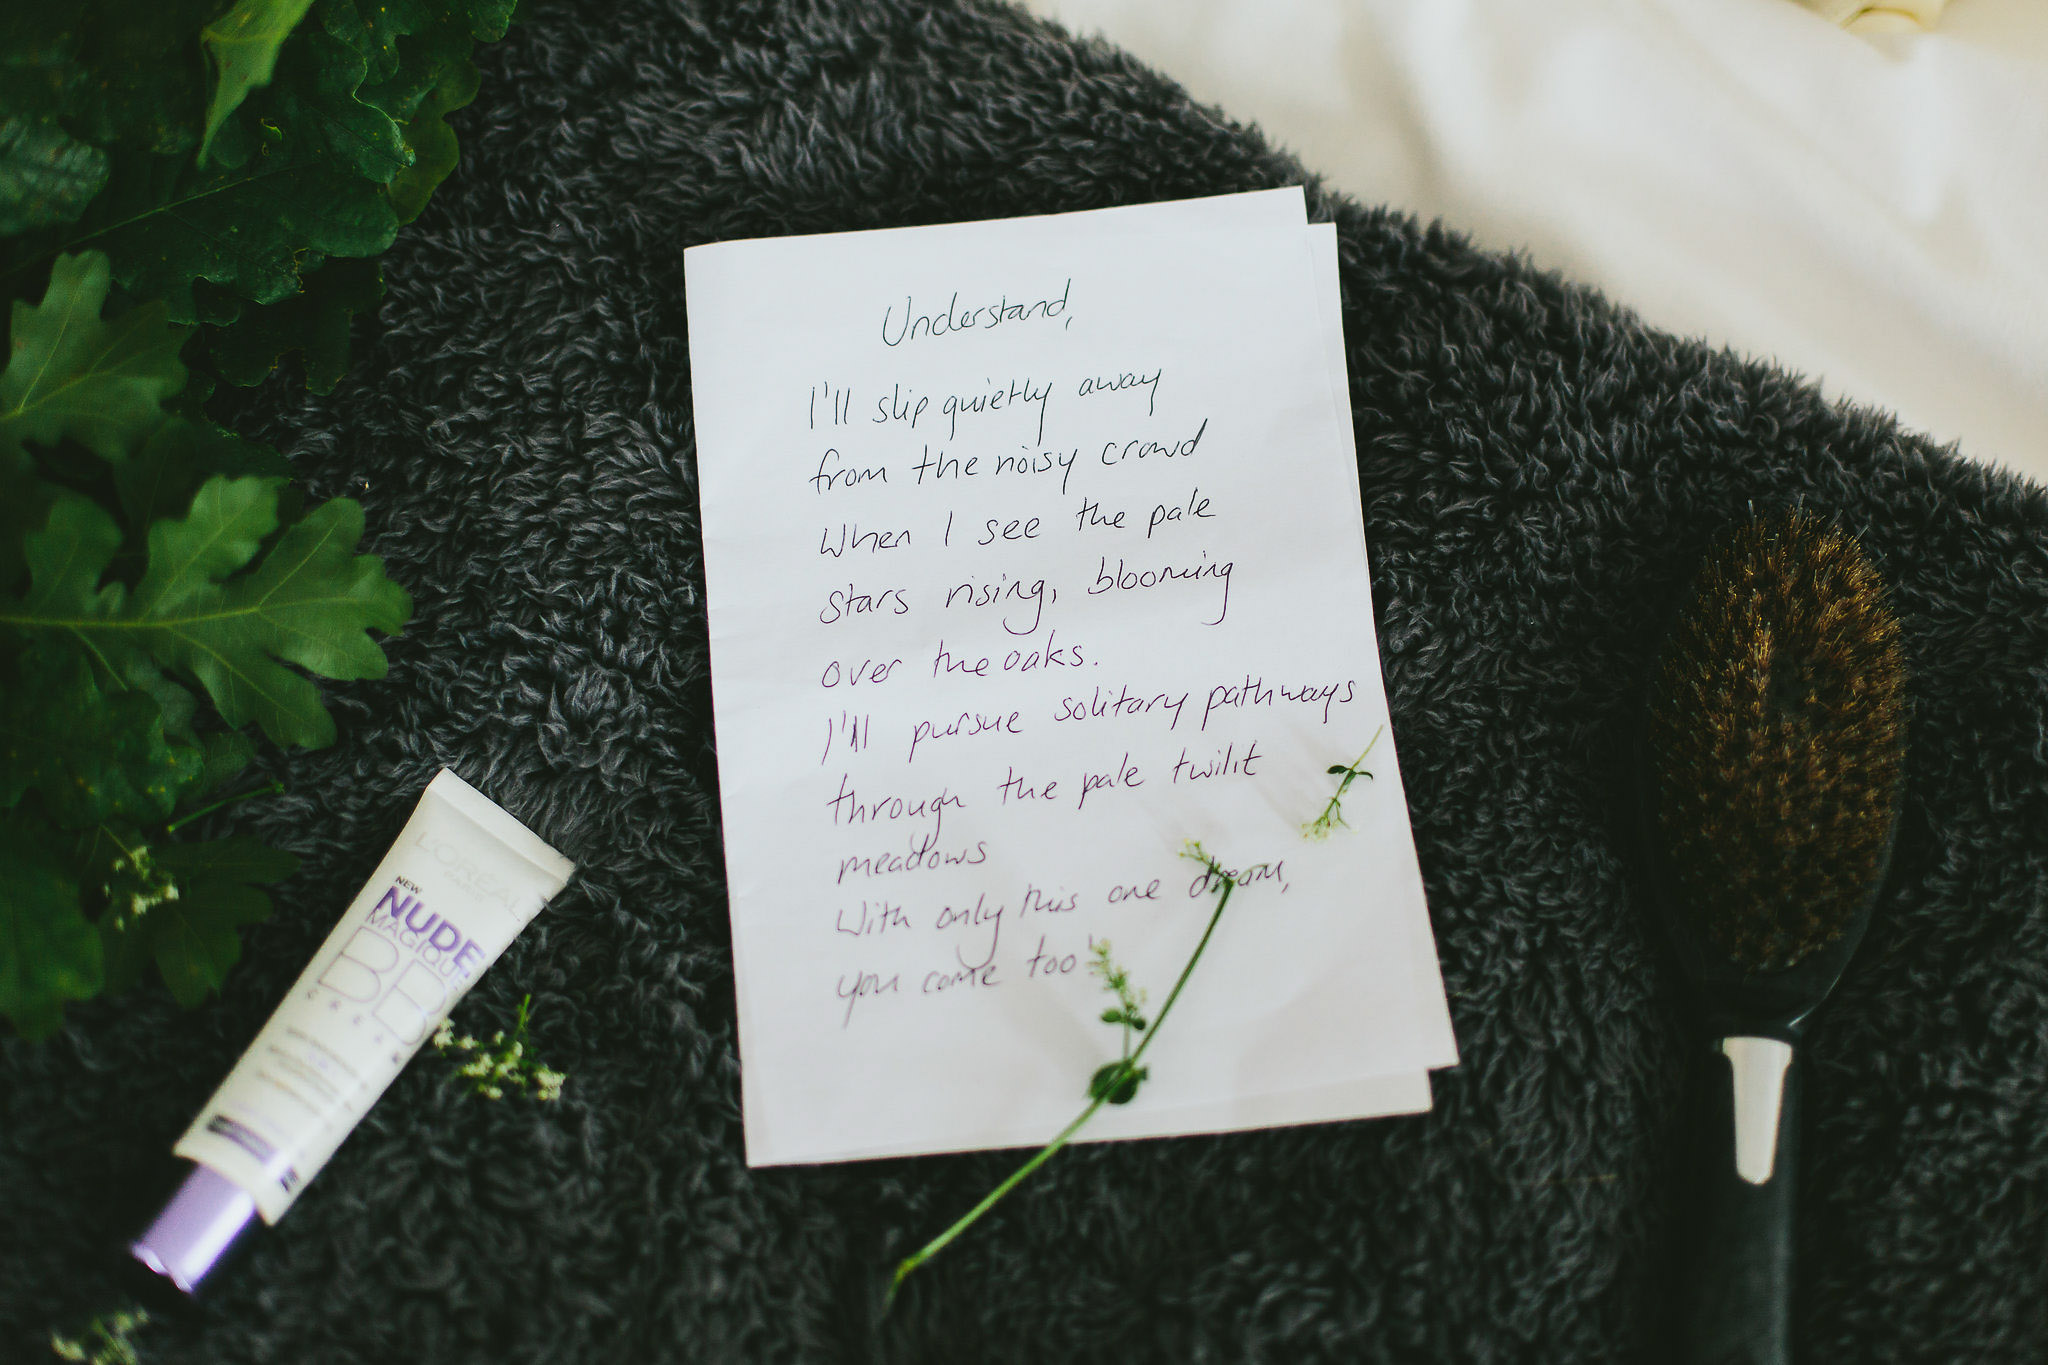 Understand,
I'll slip quietly away
from the noisy crowd
When I see the pale
stars rising, blooming
over the oaks.
I'll pursue solitary pathways
through the pale twilit
meadows
With only this one dream,
you come too
L'ORÉAL
PARIS
NEW
NUDE
MAGIQUE
BB
CREAM